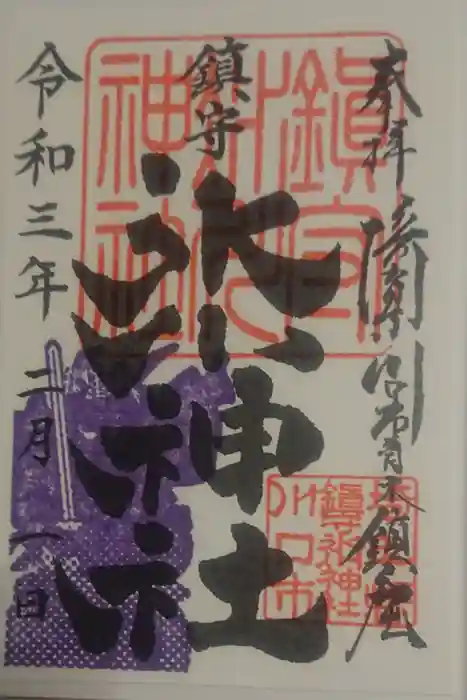 奉拝 埼玉県川口市青木鎮座
鎮守
氷川神社
令和三年二月一日
鎮守氷川神社
埼玉県
鎮守氷川神社
川口市